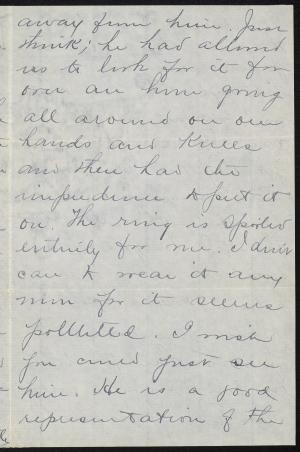 away from him. Just
think; he had allowed
us to look for it for
over an hour going
all around on our
hands and knees
and then had the
impudence to put it
on. The ring is spoiled
entirely for me. I don't
care to wear it any
more for it seems
polluted. I wish
you could just see
him. He is a good
representation of the